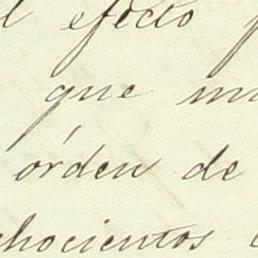 l efecto
que
órden de
chocientos